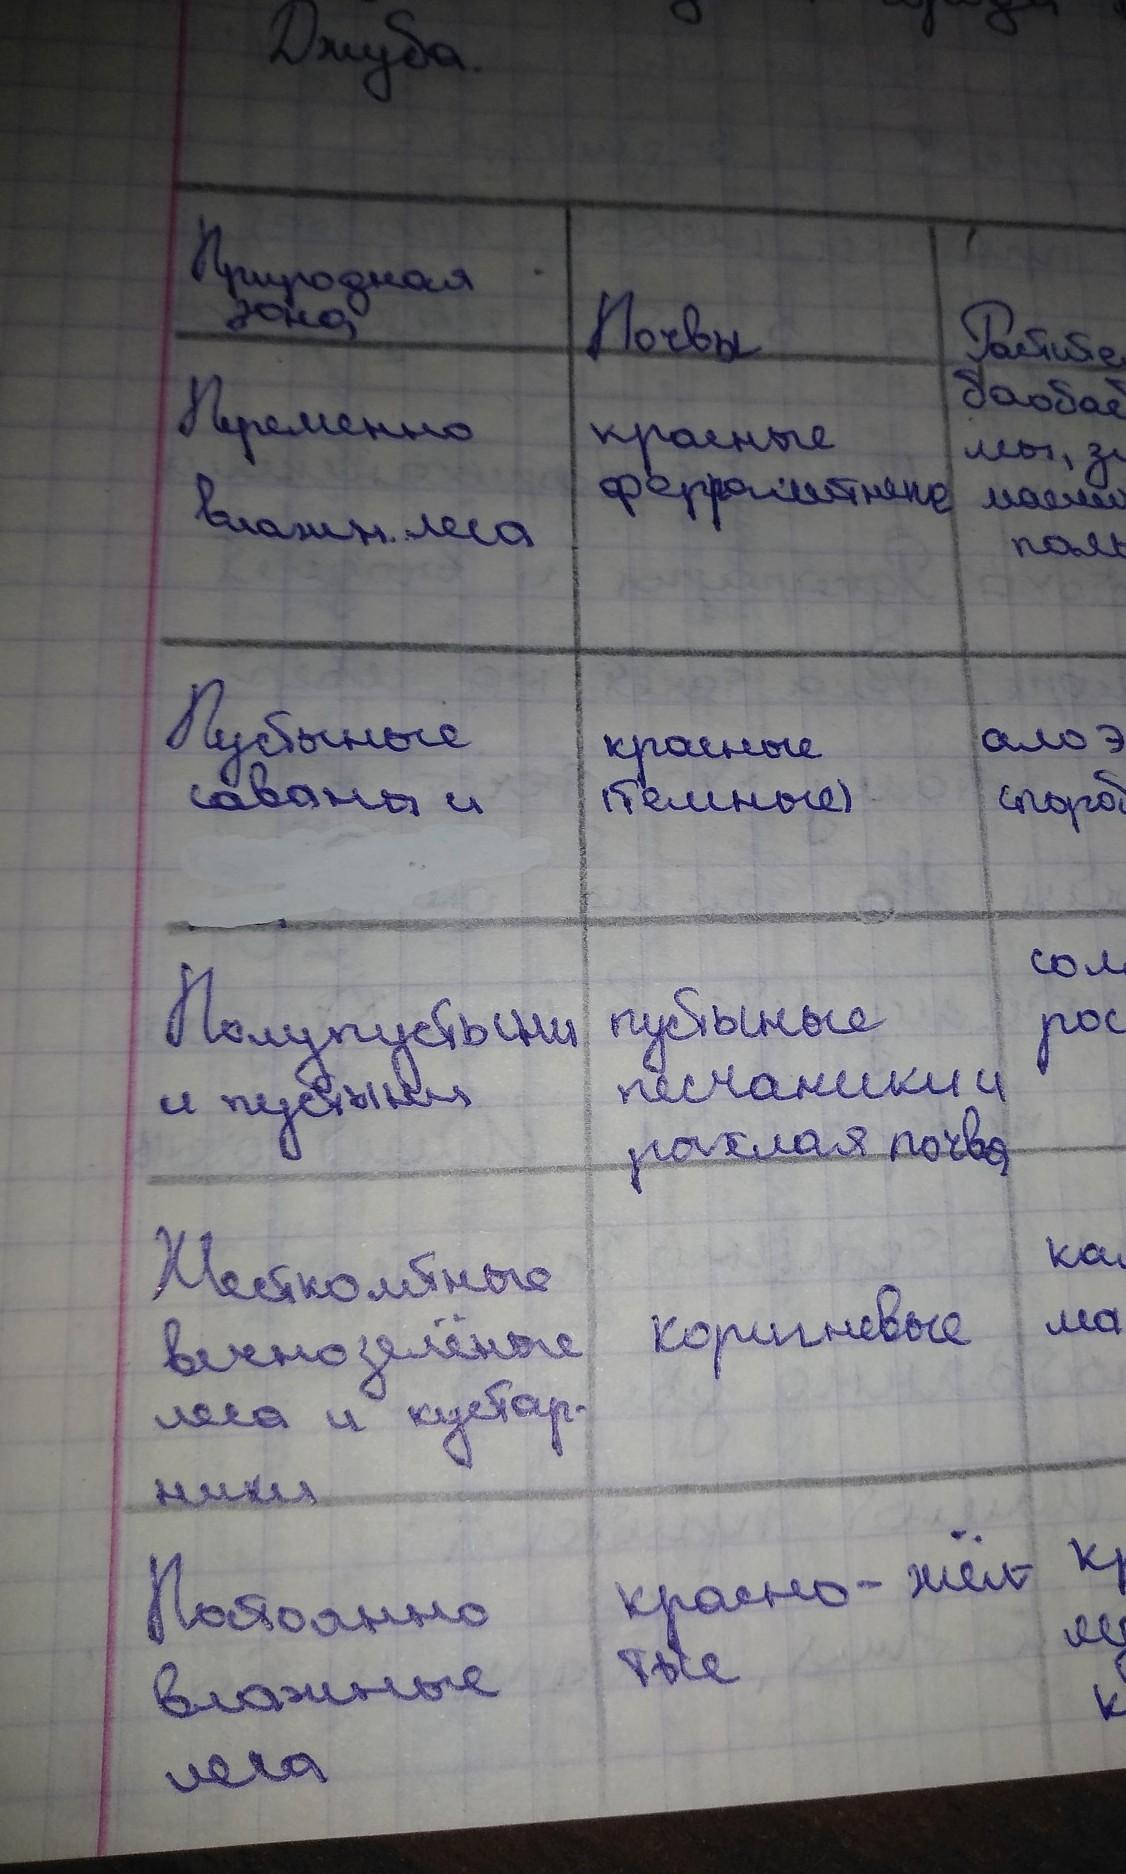 города
Джуба.
Природная
зона
Почвы
Растите
Переменно
влажн. леса
красные
ферралитные
баобаб
мы, з
масли
паль
Пустыные
саваны и
красные
(темные)
алоэ
спороб
Полупустыни
и пустыни
пустыные
песчаники и
рахлая почва
сол
рос
Жесткомтные
вечнозелёные
леса и кустар-
ники
коригневые
ка
ма
Постоянно
влажные
леса
красно-жёл
тые
кр
к